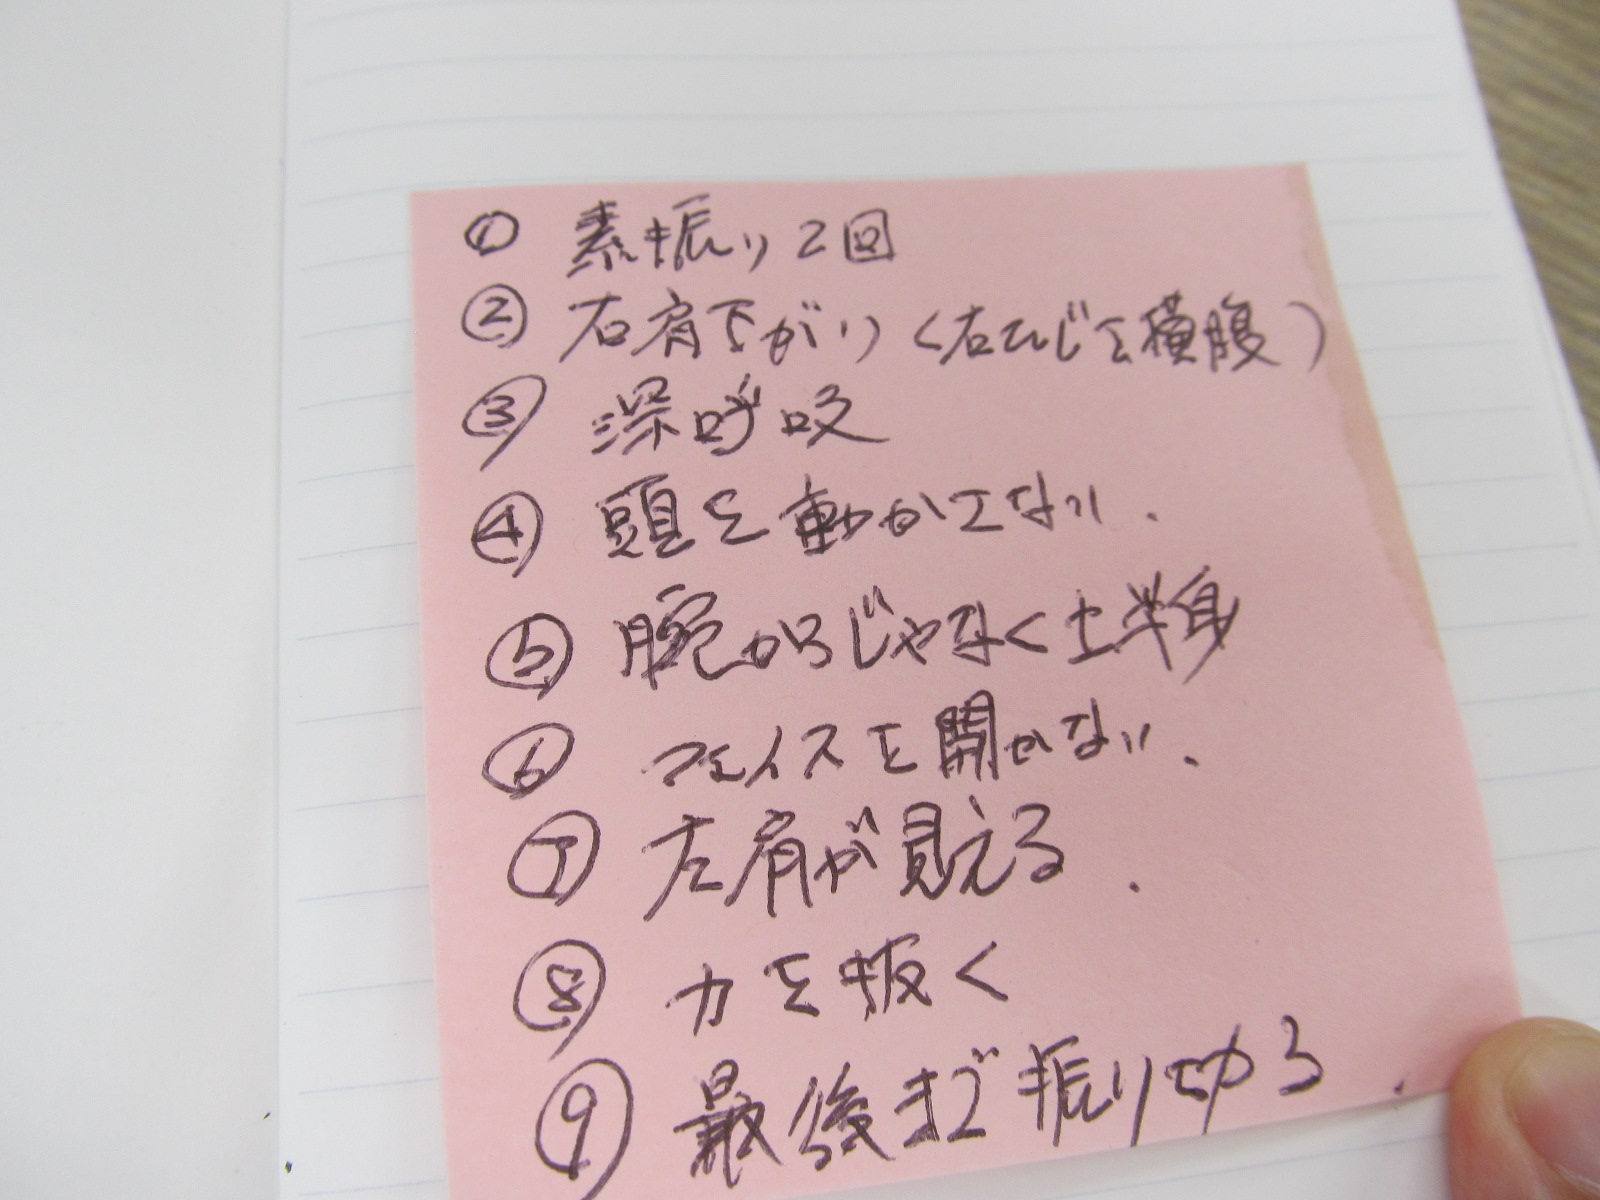 ① 素振り2回
② 右肩下がり(右ひじを横腹)
③ 深呼吸
④ 頭を動かさない.
⑤ 腕からじゃなく上半身
⑥ フェイスを開かない.
⑦ 左肩が見える.
⑧ 力を抜く
⑨ 最後まで振り切る.